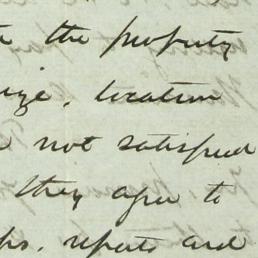 the property
size, location
not satisfied
they agree to
reports and